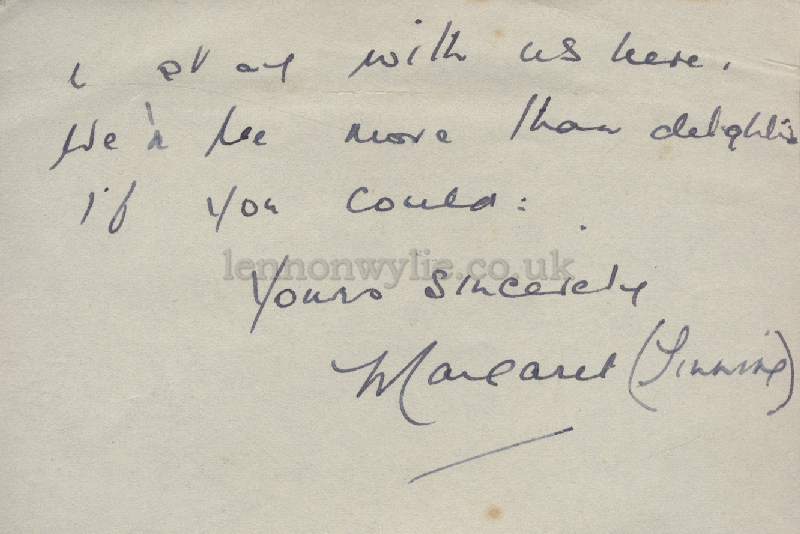 & stay with us here.
We'd be more than delighted
if you could:
lennonwylie.co.uk
Yours Sincerely
Margaret